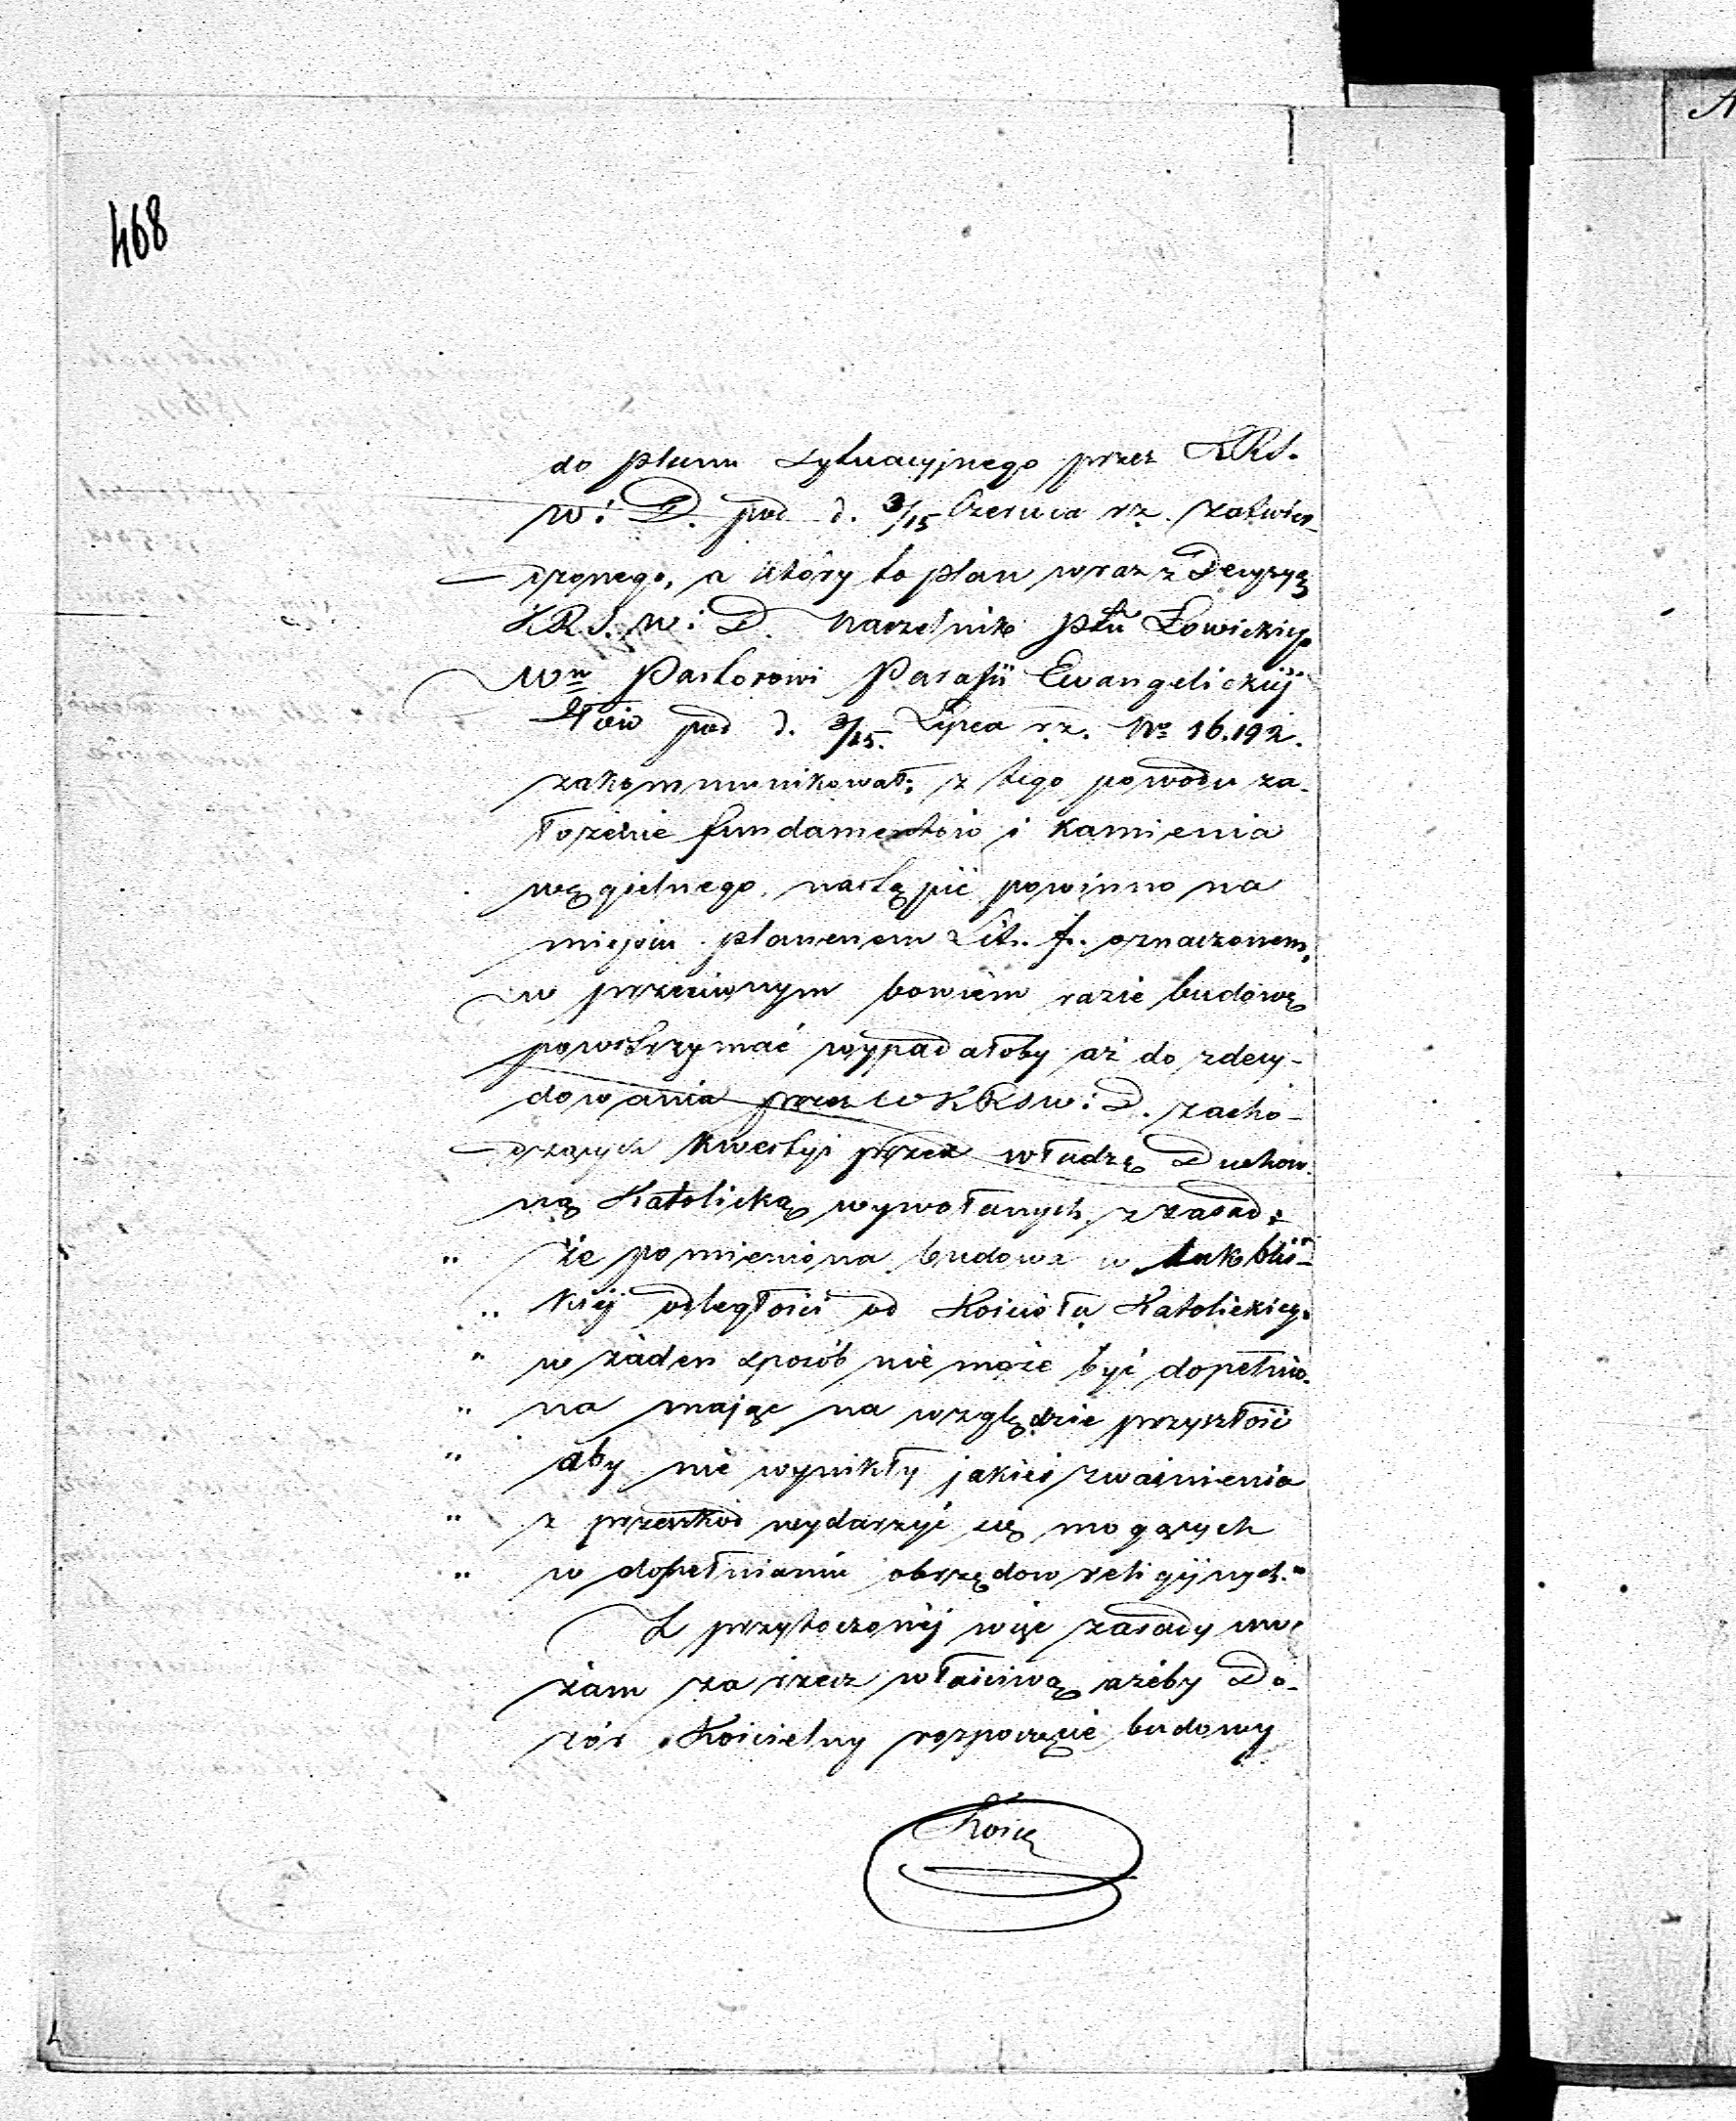 468
do planu sytuacyjnego przez KRS.
W: i D. pod d. 3/15 Czerwca r.z. zatwier-
dzonego, a który to plan wraz z Decyzyą
KRS. W: i D. Naczelnik Ptu Łowickiego
Wu Pastorowi Parafii Ewangelickiej
pod d. 3/15. Lipca r.z. No 16.192.
zakommunikował; z tego powodu za-
łożenie fundamentów i kamienia
węgielnego, nastąpić powinno na
miejscu planem Lit. f. oznaczonem,
w przeciwnym bowiem razie budowę
powstrzymać wypadałoby aż do zdecy-
dowania przez W KRSW: i D. zacho-
dzących kwestyi przez władzę Duchow-
ną Katolicką wywołanych z zasad:
" że pomieniona budowa w tak blis-
" kiej odległości od Kościoła Katolickiego
" w żaden sposób nie może być dopełnio-
" na mając na względzie przyszłość
" aby nie wynikły jakieś zwaśnienia
" z przeszkód wydarzyć się mogących
" w dopełnianiu obrzędow religijnych."
Z przytoczonej więc zasady uwa-
żam za rzecz właściwą ażeby Do-
zór Kościelny rozpoczęcie budowy